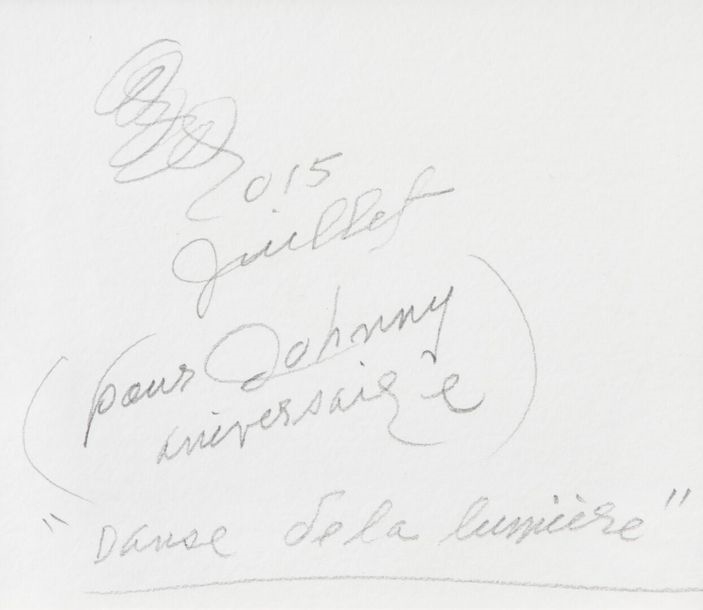 2015
Juillet
(pour Johnny
aniversaire)
"Danse de la lumière"